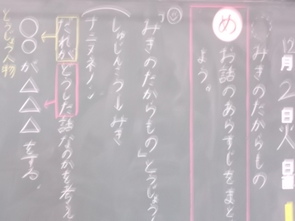 12月2日火曜
みきのたからもの
め お話のあらすじをまとめ
よう。
「みきのたからもの」とうじょう
しゅじんこう みき
ナニヌネノン
だれがどうした話なのかを考え
とうじょう人物
○○が△△△をする。